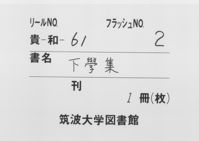 リールNO. フラッシュNO.
貴-和-61 2
書名 下學集
刊
1 冊(枚)
筑波大学図書館